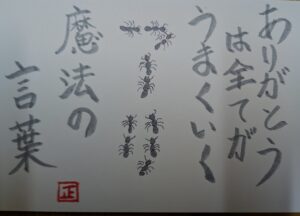 ありがとう
は全てが
うまくいく
魔法の
言葉
正